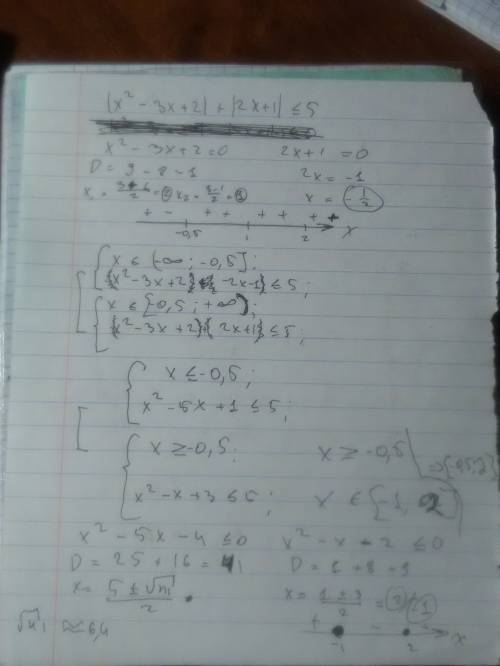 |x² - 3x + 2| + |2x + 1| ≤ 5
x² - 3x + 2 = 0    2x + 1 = 0
D = 9 - 8 = 1    2x = -1
x = -1/2
+ -   + +   + +   + +
-0,5   1   2   x
x ∈ (-∞; -0,5];
x² - 3x + 2 - 2x - 1 ≤ 5;
x ∈ [-0,5; +∞);
x² - 3x + 2 + 2x + 1 ≤ 5;
x ≤ -0,5;
x² - 5x + 1 ≤ 5;
x ≥ -0,5;    x ≥ -0,5 ⇒ [-0,5; 2]
x² - x + 3 ≤ 5;    x ∈ [-1, 2]
x² - 5x - 4 ≤ 0    x² - x - 2 ≤ 0
D = 25 + 16 = 41    D = 1 + 8 = 9
x = (5 ± √41)/2    x = (1 ± 3)/2 = 2; -1
√41 ≈ 6,4    + - +
-1   2   x